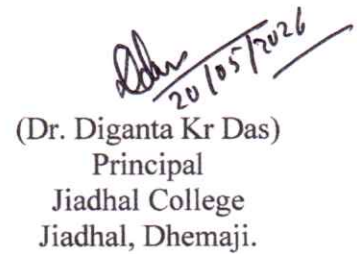 20/05/2026
(Dr. Diganta Kr Das)
Principal
Jiadhal College
Jiadhal, Dhemaji.